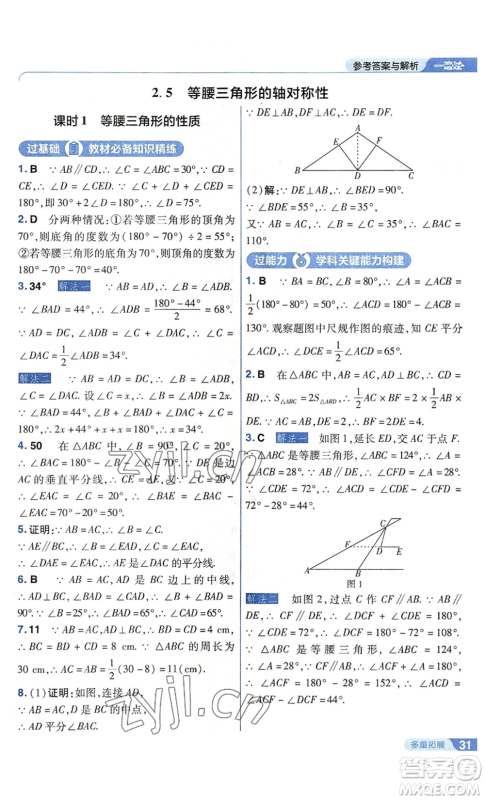 参考答案与解析 一遍过
2.5 等腰三角形的轴对称性
课时1 等腰三角形的性质
过基础 教材必备知识精练
1. B ∵AB∥CD,∴∠C=∠ABC=30°,∵CD=
CE,∴∠D=∠CED,∵∠C+∠D+∠CED=
180°,即30°+2∠D=180°,∴∠D=75°.
2. D 分两种情况:①若等腰三角形的顶角为
70°,则底角的度数为(180°-70°)÷2=55°;
②若等腰三角形的底角为70°,则顶角的度数为
180°-70°-70°=40°.
3. 34° 解法一 ∵AB=AD,∴∠B=∠ADB.
∵∠BAD=44°,∴∠ADB=(180°-44°)/2=68°.
∵AD=DC,∠ADB=∠C+∠DAC,∴∠C=
∠DAC=1/2∠ADB=34°.
解法二 ∵AB=AD=DC,∴∠B=∠ADB,
∠C=∠DAC.设∠C=x,则∠DAC=x,∴∠B=
∠ADB=∠C+∠DAC=2x.∵∠BAC+∠B+∠C=
180°,∴44°+x+2x+x=180°,∴x=34°.
4. 50 在△ABC中,∵∠B=90°,∠C=20°,
∴∠BAC=180°-∠B-∠C=70°.∵DE是边
AC的垂直平分线,∴∠EAC=∠C=20°,
∴∠BAE=∠BAC-∠EAC=50°.
5. 证明:∵AB=AC,∴∠B=∠C.
∵AE∥BC,∴∠B=∠EAD,∠C=∠EAC,
∴∠EAC=∠EAD,∴AE平分∠DAC.
6. B ∵AB=AC,D是BC边上的中线,
∴AD⊥BC,∴∠B+∠BAD=90°,∵∠BAD=
50°,∴∠B=40°,∵AB=AC,∴∠C=∠B=40°.
7. 11 ∵AB=AC,AD⊥BC,BD=4 cm,∴BC=
2BD=8 cm.∵△ABC的周长为
30 cm,∴AC=AB=1/2(30-8)=11(cm).
8. (1)证明:如图,连接AD,
∵AB=AC,D是BC的中点,
∴AD平分∠BAC,
∵DE⊥AB,DF⊥AC,∴DE=DF.
A
E F
B D C
(2)解:∵DE⊥AB,∴∠BED=90°.
∵∠BDE=55°,∴∠B=35°.
又∵AB=AC,∴∠C=35°,∴∠BAC=
110°.
过能力 学科关键能力构建
1. B ∵BA=BC,∠B=80°,∴∠A=∠ACB=
1/2(180°-80°)=50°,∴∠ACD=180°-∠ACB=
130°.观察题图中尺规作图的痕迹,知CE平分
∠ACD,∴∠DCE=1/2∠ACD=65°.
2. B 在△ABC中,AB=AC,AD⊥BC,∴CD=
BD,∴S△ABC=2S△ABD,∴1/2AC×BF=2×1/2AB×
DE.∵AB=AC,∴BF=2DE=4.
3. C 解法一 如图1,延长ED,交AC于点F.
∵△ABC是等腰三角形,∴∠A=∠ACB=28°.
∵AB∥DE,∴∠CFD=∠A=28°,∵∠CDE=
72°,∠CDE=∠CFD+∠ACD,∴∠ACD=
72°-28°=44°.
C
F
D E
A B
图1
解法二 如图2,过点C作CF∥AB.∵AB∥
DE,∴CF∥DE,∴∠CDE+∠DCF=180°,
∠A+∠ACF=180°.∵△ABC是等腰三角形,
∴∠A=28°,∴∠ACF=180°-28°=152°.
∵∠CDE=72°,∴∠DCF=180°-72°=108°,
∴∠ACD=152°-108°=44°.
多重拓展 31
zyjl.cn
zyjl.cn